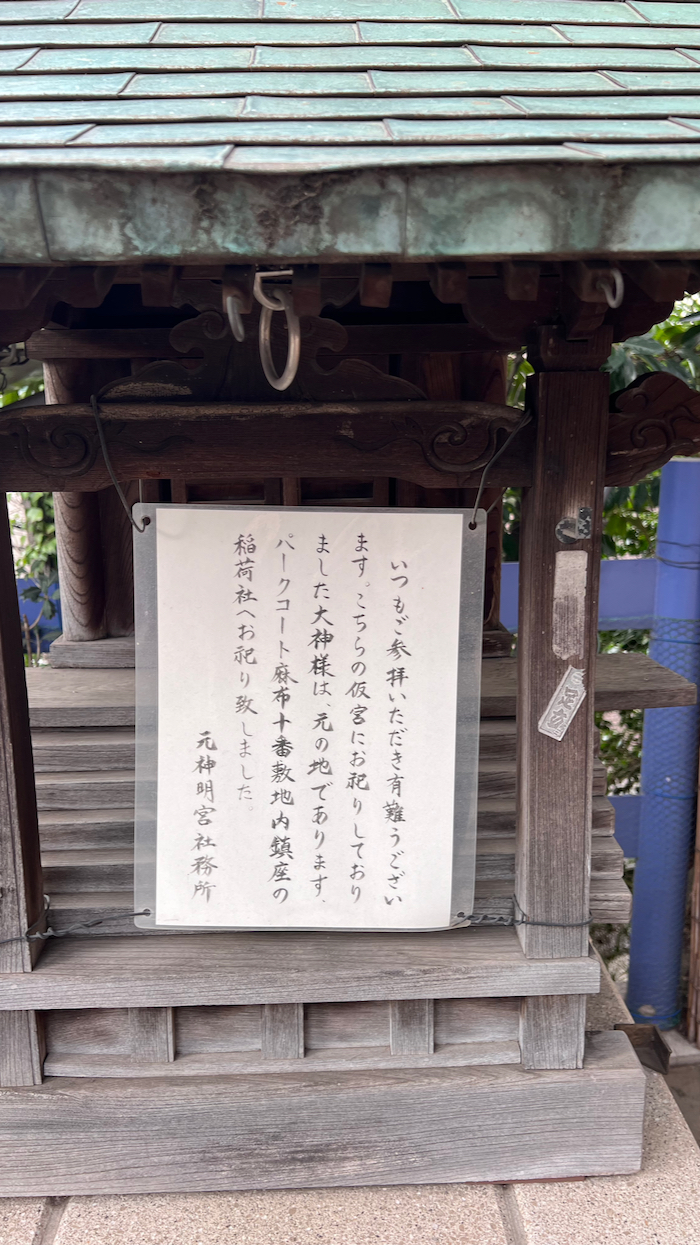 いつもご参拝いただき有難うござい
ます。こちらの仮宮にお祀りしており
ました大神様は、元の地であります、
パークコート麻布十番敷地内鎮座の
稲荷社へお祀り致しました。
元神明宮社務所